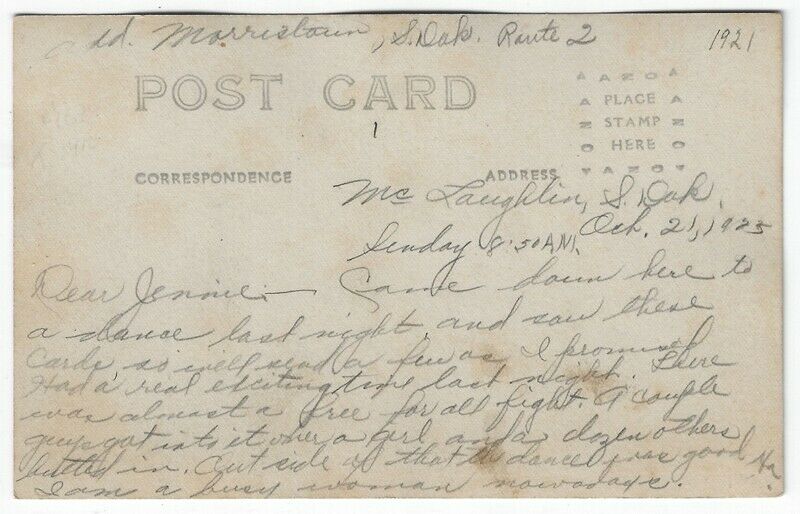 Add. Morristown, S. Dak. Route 2 1921
POST CARD
AZO
PLACE
STAMP
HERE
AZO
1
CORRESPONDENCE ADDRESS
Mc Laughlin, S. Dak.
Oct. 21, 1923
Sunday 8:30 A.M.
Dear Jennie:— Came down here to
a dance last night and saw these
Cards, so will send a few as I promised.
Had a real exciting time last night. There
was almost a free for all fight. A couple
guys got into it over a girl and a dozen others
butted in. Out side of that the dance was good
I am a busy woman nowadays. Ha.